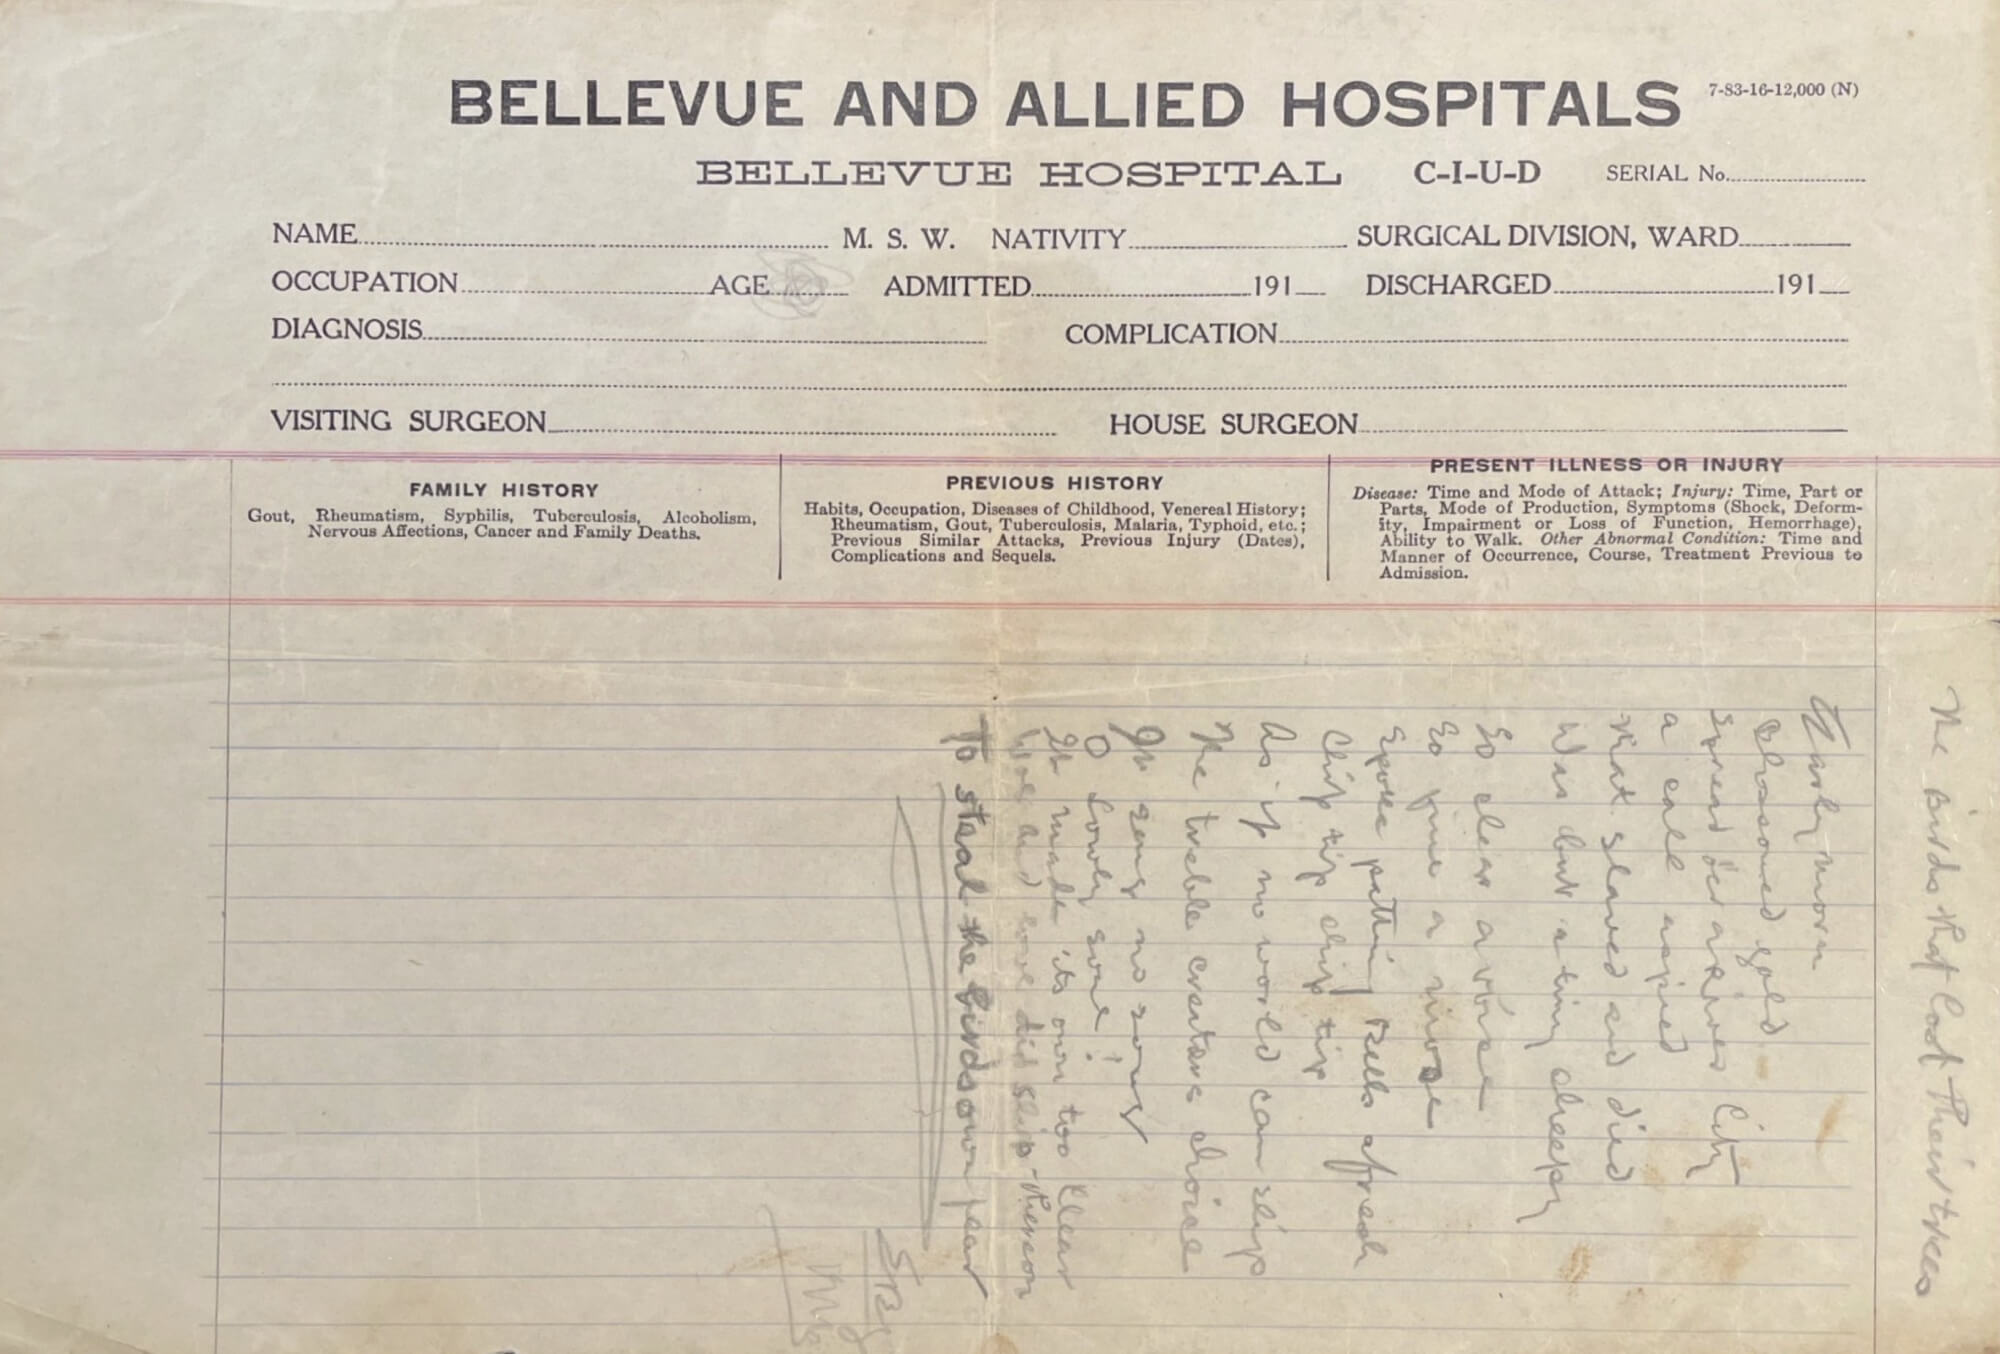 BELLEVUE AND ALLIED HOSPITALS
7-83-16-12,000 (N)
BELLEVUE HOSPITAL C-I-U-D SERIAL No.
NAME M. S. W. NATIVITY SURGICAL DIVISION, WARD
OCCUPATION AGE ADMITTED 191 DISCHARGED 191
DIAGNOSIS COMPLICATION
VISITING SURGEON HOUSE SURGEON
FAMILY HISTORY
Gout, Rheumatism, Syphilis, Tuberculosis, Alcoholism,
Nervous Affections, Cancer and Family Deaths.
PREVIOUS HISTORY
Habits, Occupation, Diseases of Childhood, Venereal History;
Rheumatism, Gout, Tuberculosis, Malaria, Typhoid, etc.;
Previous Similar Attacks, Previous Injury (Dates),
Complications and Sequels.
PRESENT ILLNESS OR INJURY
Disease: Time and Mode of Attack; Injury: Time, Part or
Parts, Mode of Production, Symptoms (Shock, Deform-
ity, Impairment or Loss of Function, Hemorrhage),
Ability to Walk. Other Abnormal Condition: Time and
Manner of Occurrence, Course, Treatment Previous to
Admission.
The Birds that Lost Their trees
Early morn
Blossomed gold
Spread o'er a River City
a call
that slaved and died
Was but a tiny cheepy
So clear a voise
So fine a
Spoke petting Bells afresh
Chip tip chip tip
As if no world can slip
The treble creatures choice
It sung no song
O lowly sone!
It made its own too clear
Woe and love did slip thereon
To steal the birds own fear